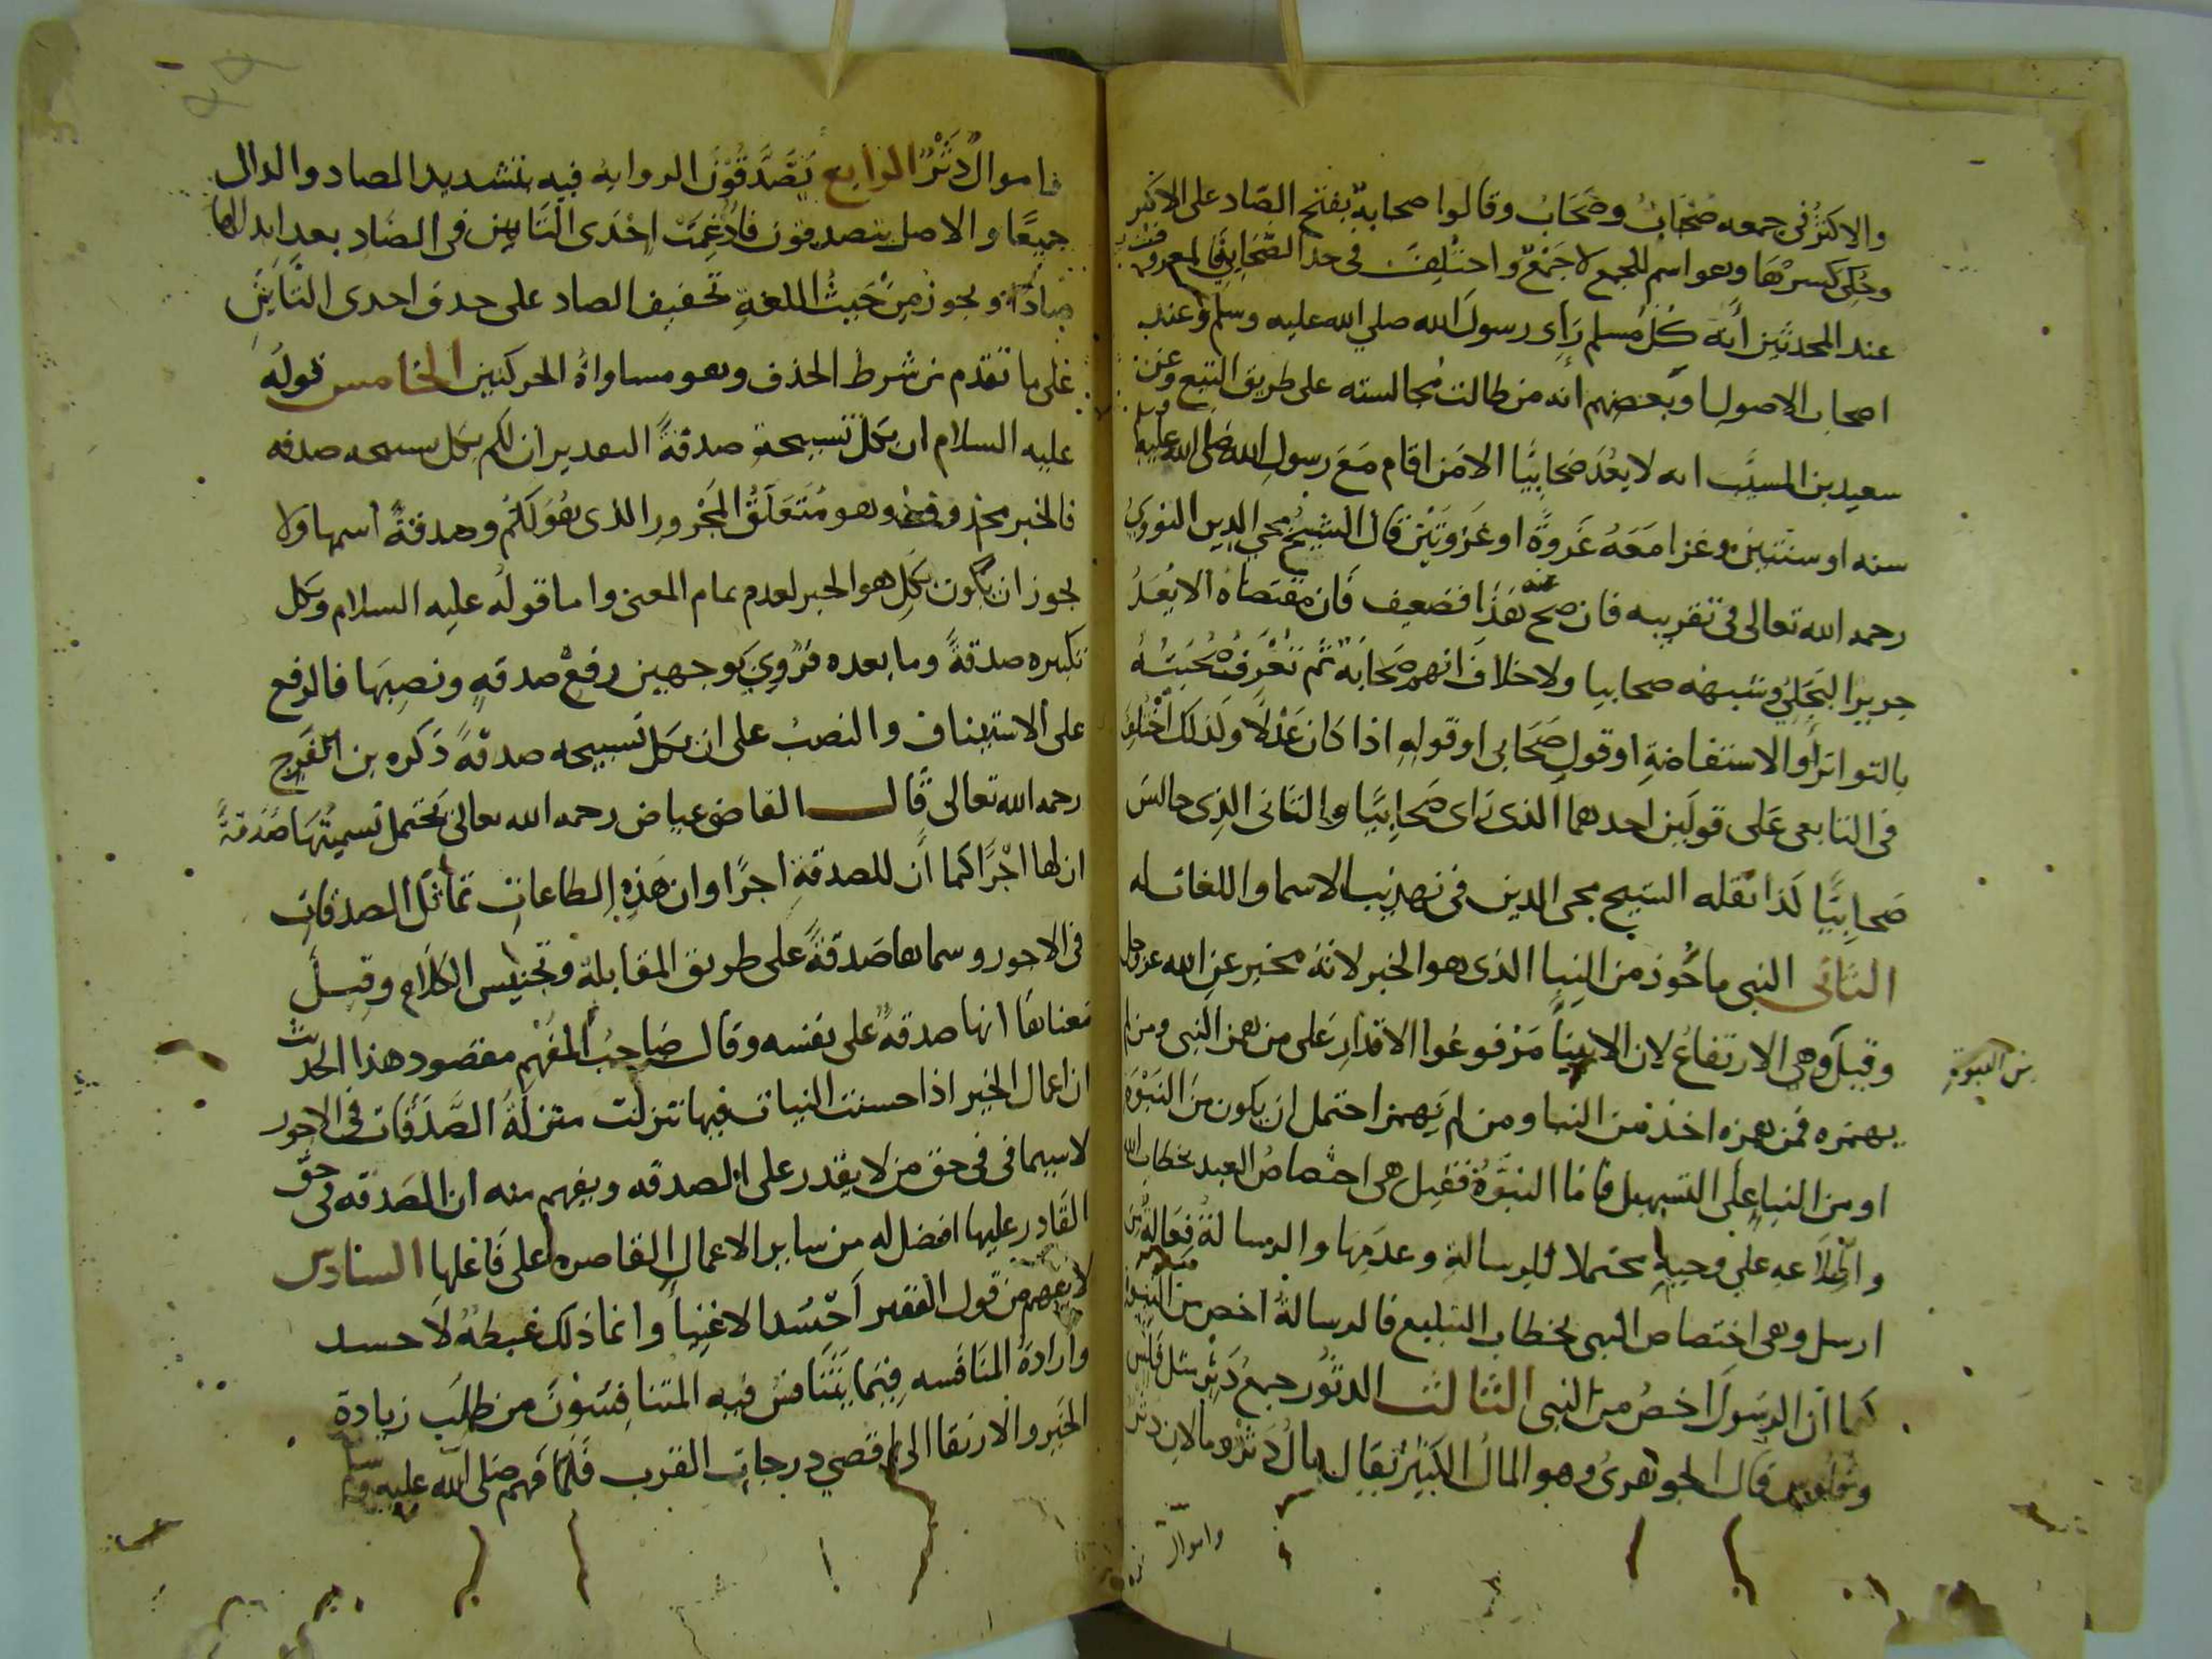 والاكثر في جمعه صِحَابٌ وصَحَابٌ وقالوا صحابةٌ بفتح الصاد على الاكثر
وحُكِى كسرُهَا وهو اسم للجمع لا جَمْعٌ واختُلِفَ في حد الصَّحَابِيّ فالمعروف
عند المحدثين أنه كُل مُسلم رَأى رسول الله صلي الله عليه وسلم وعند
اصحاب الاصول او بعضهم انه من طالت مُجالسته على طريق التبع وعن
سعيد بن المسيَّب انه لا يعُدّ صَحابِيًّا الا مَن اقام مَعَ رسول الله صلى الله عليه وسلم
سنه او سنتين وغزا مَعَهُ غَزوةً او غَزوَتَيْن قال الشيخ محيي الدين النووي
رحمه الله تعالى في تقريبه فان صح عنه هَذا فضعيف فان مقتضاه الا يُعَدّ
جرير البَجَلِيّ وشبهه صحابيا ولا خلاف انهم صَحابَة ثم تُعْرَفُ صُحْبَتُهُ
بالتواتر أو الاستفاضةِ او قولِ صَحَابى او قولِهِ اذا كان عَدْلًا وكذلك اختُلِفَ
في التابعى عَلى قولَين احدهما الذى رَاى صَحابِيًّا والثاني الذِى جالسَ
صَحابِيًّا كَذا نقله الشيخ محى الدين في تهذيب الاسما واللغات له
الثاني النبي ماخُوذ من النبا الذى هو الخبر لانهُ مخبر عن الله عز وجل
وقيلَ وهي الارتفاعُ لان الانبيَآ مَرْفوعُوا الاقدارِ عَلى من همز النبى ومن لم
من النبوة
يهمزه فمن همزه اخذهُ من النبا ومن لم يَهمز احتمل ان يكون مِن النبْوَة
او من النباء على التسهيل فامّا النبُوَّةُ فقيل هى اختصاصُ العبد بخطابِ الله
واطِّلاَعه علي وحيهِ محتملا للرسالةِ وعدَمِهَا والرسالةُ فِعَالةٌ من
ارسل وهى اختصاص النبى بخطاب التبليغ فالرسالة اخص من النبوة
كما ان الرسَولَ اخصُ من النبى الثالث الدثور جمعُ دَثْر مثل فَلْس
وفُلُوس قال الجوهرىُ وهو المالُ الكثيرُ يُقال مالٌ دَثْرٌ ومالان دثر
واموال
فاموالٌ دَثْرٌ الرابع تَصَّدَّقُوْنَ الرواية فيه بتشديد الصاد والدال
جميعًا والاصل تتصدقون فادْغِمَتْ احْدَى التَّاءَين في الصَّاد بعد ابدالها
صادًا ويجوز مِنْ حَيثُ اللغةِ تخفيف الصاد على حدف احدى التاءَينِ
عَلى ما تقدم من شرط الحذف وهو مساواةُ الحركتين الخامس قوله
عليه السلام ان بكل تسبيحةٍ صدقةً التقدير ان لكم بكل تسبيحه صدقه
فالخبر محذوفٌ وهو مُتَعَلَّقُ المَجْرورِ الذى هُو لَكُم وصدقةً اسمها ولا
يجوز ان يكون بِكُلِ هو الخبر لعدم تمام المعنى واما قوله عليه السلام وكل
تكبيره صدقةً وما بعده فرُوِيَ بوجهين رفعْ صدقهٍ ونصبِهَا فالرفع
على الاستيناف والنصبُ على ان بكل تسبيحه صدقهً ذكره بن الفَرَج
رحمه الله تعالى قال القاضى عياض رحمه الله تعالى يحتمل تسميتُهَا صَدَقةً
ان لها اجْرًا كما أن للصدقةِ اجرًا وان هَذِهِ الطاعاتِ تماثل الصدقات
في الاجور وسماها صَدَقةً على طريق المقابلة وتجنيس الكَلام وقيلَ
مَعناهَا انها صدقهٌ على نفسه وقال صَاحِبُ المُفْهِم مقصود هذا الحديث
ان اعمال الخير اذا حسنت النيات فيها تنزلت منزلةُ الصَّدَقَات في الاجور
لاسيما في في حق من لا يقدر على الصدقه ويفهم منه ان الصَدقه في حقّ
القادر عليها افضل له من ساير الاعمال القاصره على فَاعلها السادس
لا يفهم من قول الفقير اَحْسُد الاغنيآ وانما ذلك غبطهٌ لا حسد
وارادةُ المنَافَسه فِيْمَا يَتَنَافسُ فيه المتنافِسُونَ من طلَب زيادة
الخير والارتقا الى اقصى درجات القرب فلما فَهم صلى الله عليه وسلم